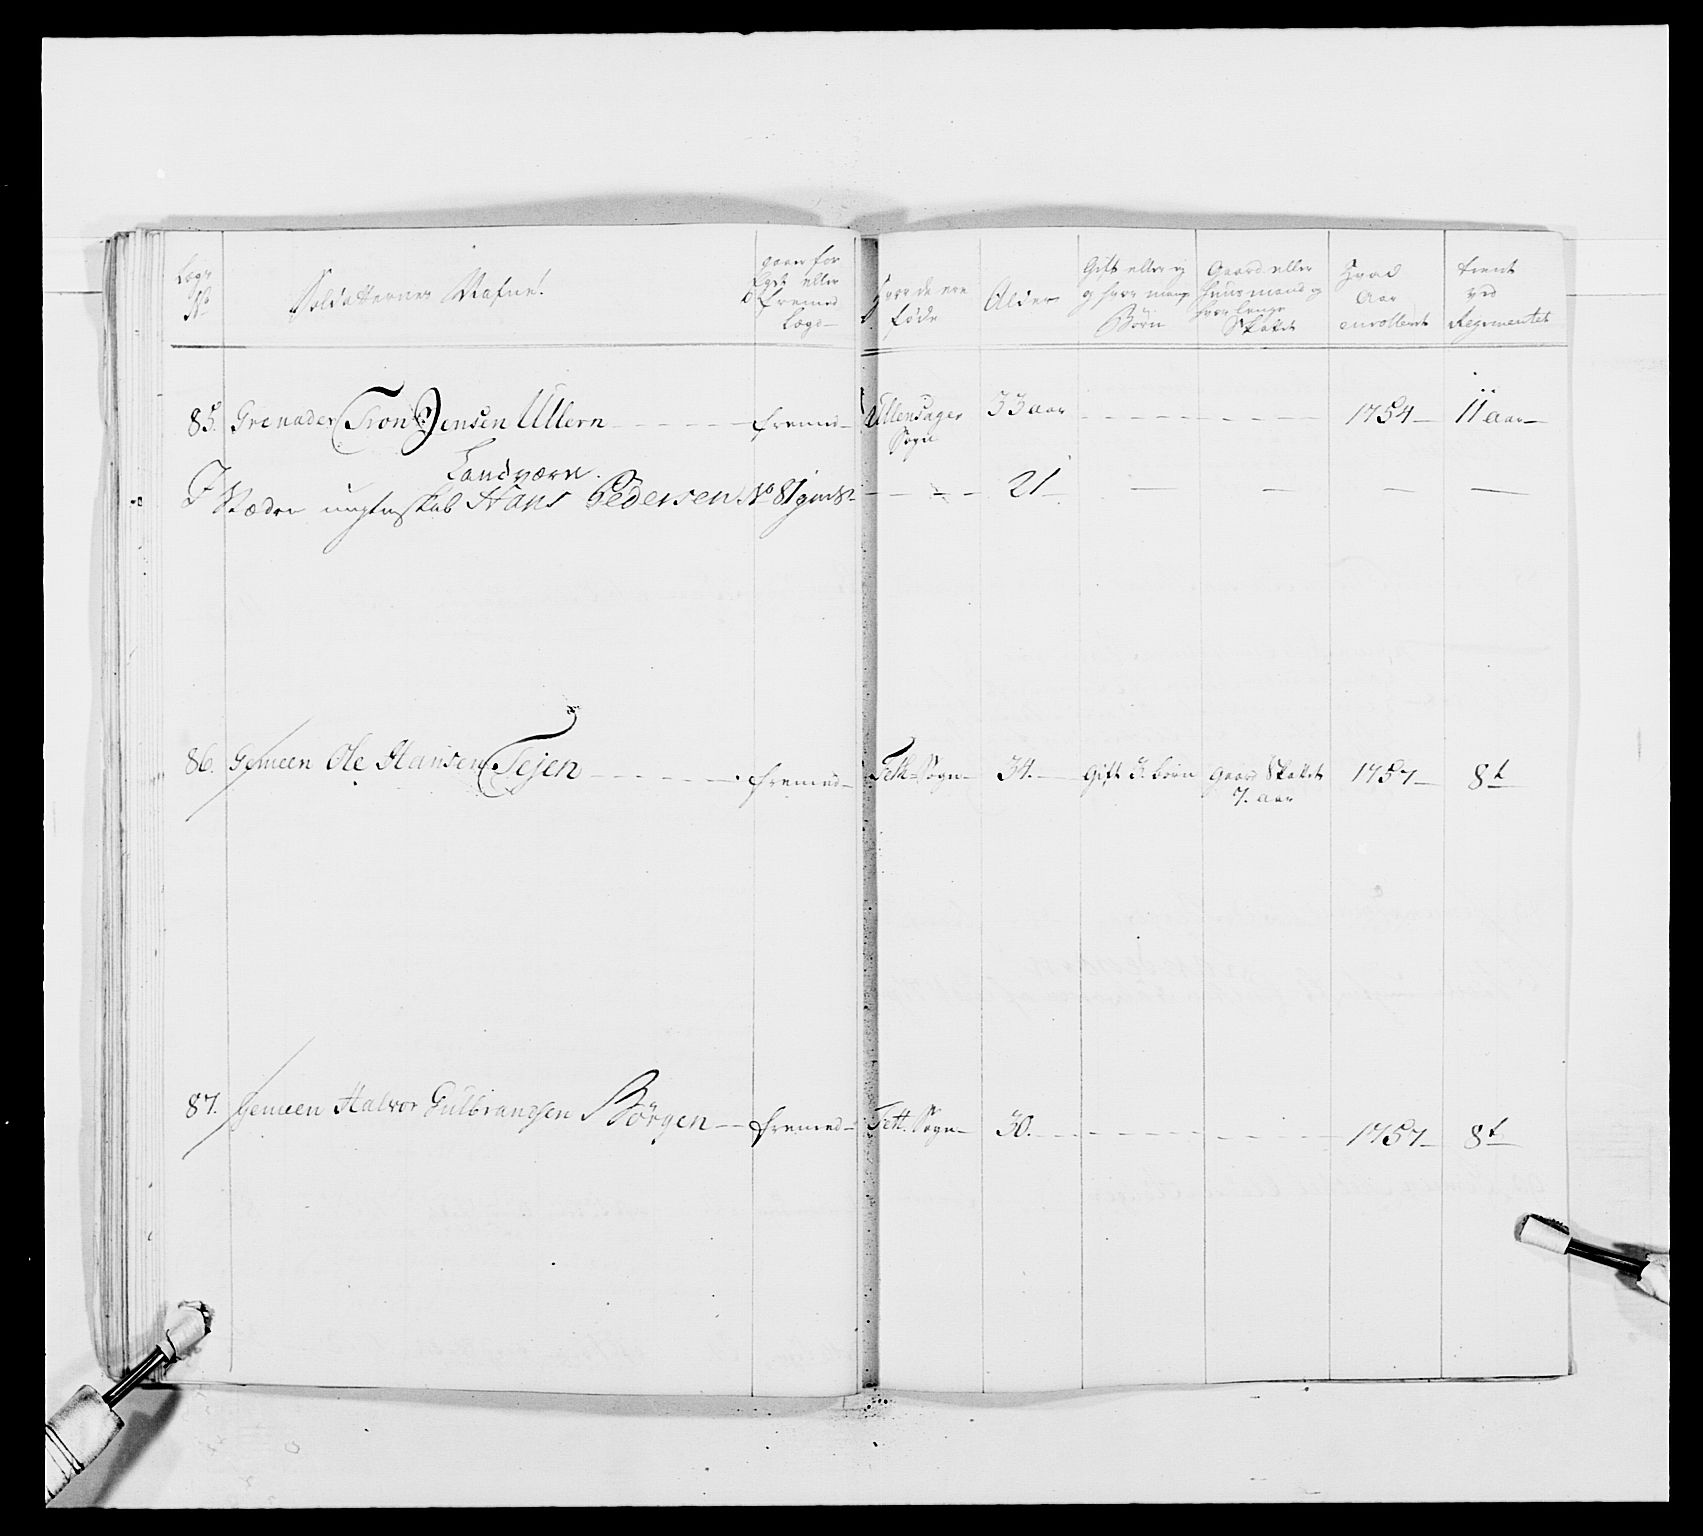 Lægs
No
Soldatternes Nafne!
gaaer for
Egit eller
fremed
Lægd
Hvor de ere
føde
Alder
Gift eller ej
og hvor mange
Börn
Gaard eller
Huusmand og
hvor lenge
Skatet
Hvad
Aar
enrolleret
tient
ved
Regimentet
85. Grenader Tron Jensen Ullern fremed Ullensager 33 aar 1754 11 aar
Sogn
Landværn
Hans Pedersen No 81 21
86. Gemeen Ole Hansen Tejen fremed Feth Sogn 34. Gift 3. börn Gaard Skatet 1757 8t
7. aar
87. Gemeen Halvor Gulbrandsen Börgen fremed Fett Sogn 30. 1757 8t